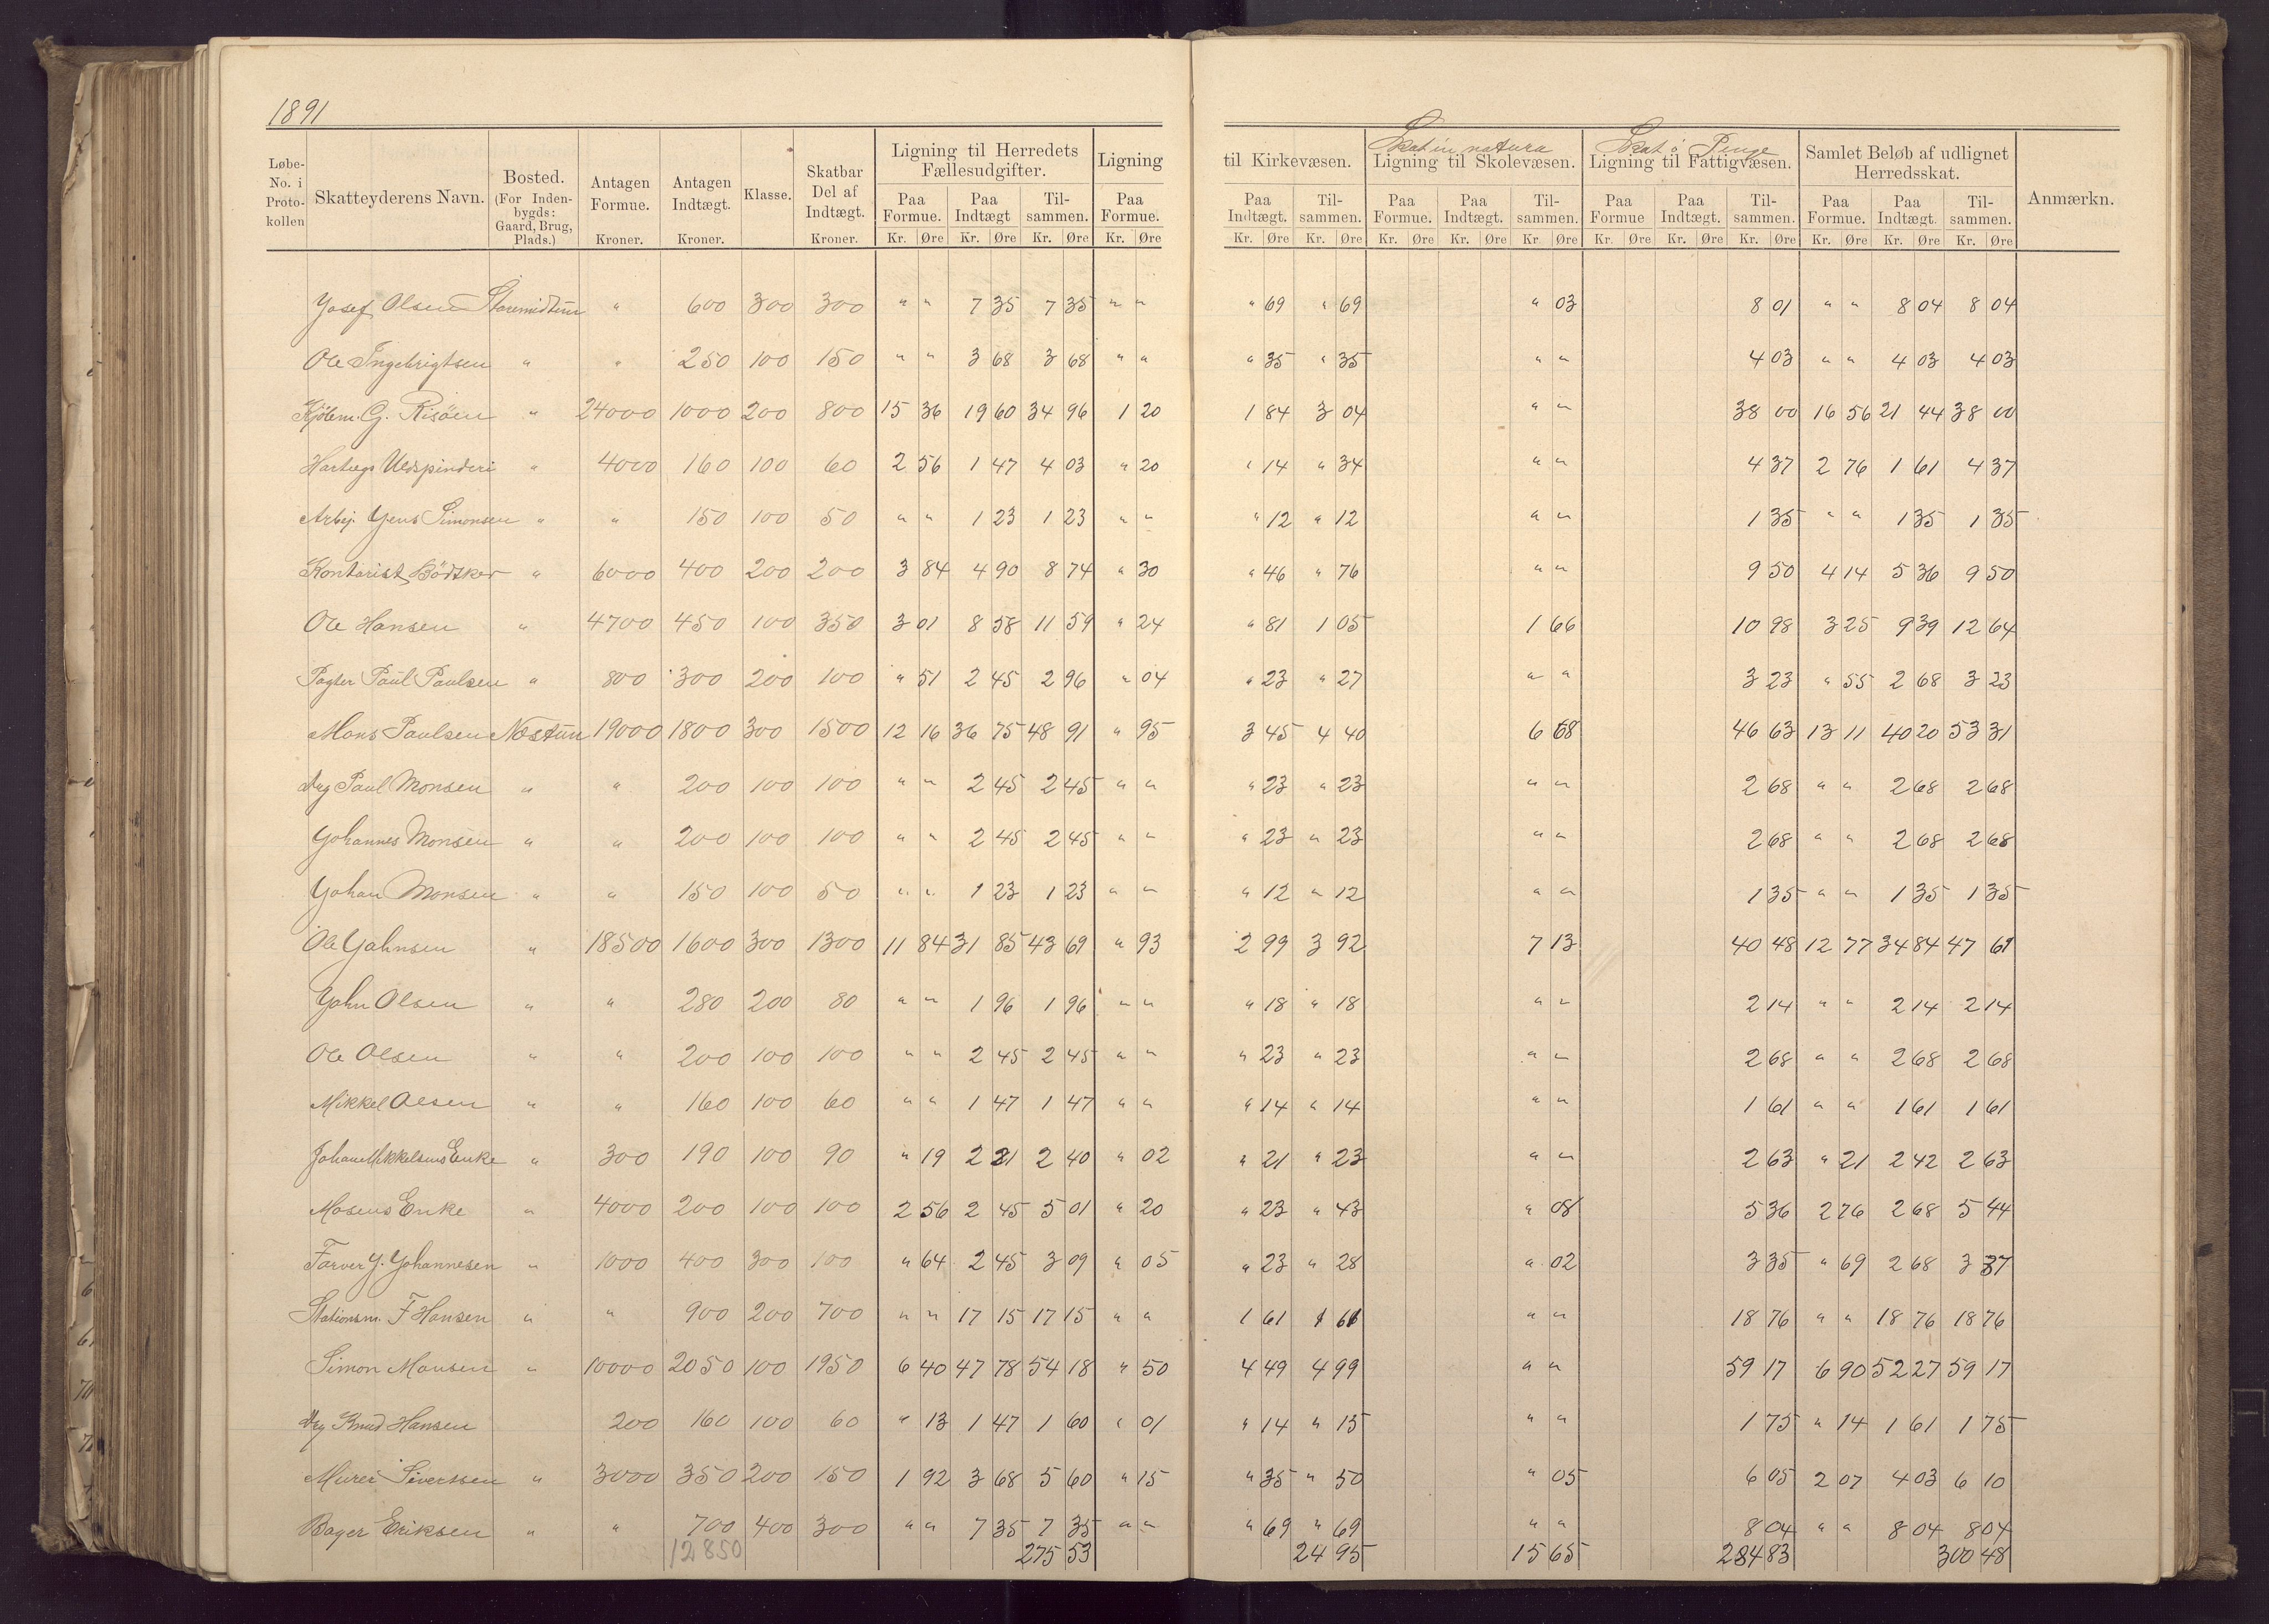 1891
Løbe-No. i Proto-kollen | Skatteyderens Navn. | Bosted. (For Inden-bygds: Gaard, Brug, Plads.) | Antagen Formue. Kroner. | Antagen Indtægt. Kroner. | Klasse. | Skatbar Del af Indtægt. Kroner. | Ligning til Herredets Fællesudgifter. | Ligning til Kirkevæsen. | Skat in natura Ligning til Skolevæsen. | Skat i Penge Ligning til Fattigvæsen. | Samlet Beløb af udlignet Herredsskat. | Anmærkn.
Paa Formue. | Paa Indtægt | Til-sammen. | Paa Formue. | Paa Indtægt. | Til-sammen. | Paa Formue. | Paa Indtægt. | Til-sammen. | Paa Formue | Paa Indtægt. | Til-sammen. | Paa Formue. | Paa Indtægt. | Til-sammen.
Kr. Øre Kr. Øre Kr. Øre Kr. Øre Kr. Øre Kr. Øre Kr. Øre Kr. Øre Kr. Øre Kr. Øre Kr. Øre Kr. Øre Kr. Øre Kr. Øre Kr. Øre
Josef Olsen " 600 300 300 " " 7 35 7 35 " " " 69 " 69 " 03 8 01 " " 8 04 8 04
Ole Ingebrigtsen " " 250 100 150 " " 3 68 3 68 " " " 35 " 35 " " 4 03 " " 4 03 4 03
Kjøbm. G. Risöen " 24000 1000 200 800 15 36 19 60 34 96 1 20 1 84 3 04 " " 38 00 16 56 21 44 38 00
Uldspinderi " 4000 160 100 60 2 56 1 47 4 03 " 20 " 14 " 34 " " 4 37 2 76 1 61 4 37
Arbej. Jens Simonsen " " 150 100 50 " " 1 23 1 23 " " " 12 " 12 " " 1 35 " " 1 35 1 35
Kontorist Bödtker " 6000 400 200 200 3 84 4 90 8 74 " 30 " 46 " 76 " " 9 50 4 14 5 36 9 50
Ole Hansen " 4700 450 100 350 3 01 8 58 11 59 " 24 " 81 1 05 1 66 10 98 3 25 9 39 12 64
Pagter Paul Paulsen " 800 300 200 100 " 51 2 45 2 96 " 04 " 23 " 27 " " 3 23 " 55 2 68 3 23
Mons Paulsen Nestun 19000 1800 300 1500 12 16 36 75 48 91 " 95 3 45 4 40 6 68 46 63 13 11 40 20 53 31
Paul Monsen " " 200 100 100 " " 2 45 2 45 " " " 23 " 23 " " 2 68 " " 2 68 2 68
Johannes Monsen " " 200 100 100 " " 2 45 2 45 " " " 23 " 23 " " 2 68 " " 2 68 2 68
Johan Monsen " " 150 100 50 " " 1 23 1 23 " " " 12 " 12 " " 1 35 " " 1 35 1 35
Ole Johnsen " 18500 1600 300 1300 11 84 31 85 43 69 " 93 2 99 3 92 7 13 40 48 12 77 34 84 47 61
John Olsen " " 280 200 80 " " 1 96 1 96 " " " 18 " 18 " " 2 14 " " 2 14 2 14
Ole Olsen " " 200 100 100 " " 2 45 2 45 " " " 23 " 23 " " 2 68 " " 2 68 2 68
Mikkel Olsen " " 160 100 60 " " 1 47 1 47 " " " 14 " 14 " " 1 61 " " 1 61 1 61
Johan Mikkelsens Enke " 300 190 100 90 " 19 2 21 2 40 " 02 " 21 " 23 " " 2 63 " 21 2 42 2 63
Enke " 4000 200 100 100 2 56 2 45 5 01 " 20 " 23 " 43 " 08 5 36 2 76 2 68 5 44
Farver J. Johannesen " 1000 400 300 100 " 64 2 45 3 09 " 05 " 23 " 28 " 02 3 35 " 69 2 68 3 37
Stationsm. F Hansen " " 900 200 700 " " 17 15 17 15 " " 1 61 1 61 " " 18 76 " " 18 76 18 76
Simon Monsen " 10000 2050 100 1950 6 40 47 78 54 18 " 50 4 49 4 99 " " 59 17 6 90 52 27 59 17
Knud Hansen 200 160 100 60 " 13 1 47 1 60 " 01 " 14 " 15 " " 1 75 " 14 1 61 1 75
Murer Sivertsen " 3000 350 200 150 1 92 3 68 5 60 " 15 " 35 " 50 " 05 6 05 2 07 4 03 6 10
Bager Eriksen " " 700 400 300 " " 7 35 7 35 " " " 69 " 69 " " 8 04 " " 8 04 8 04
12850 275 53 24 95 15 65 284 83 300 48